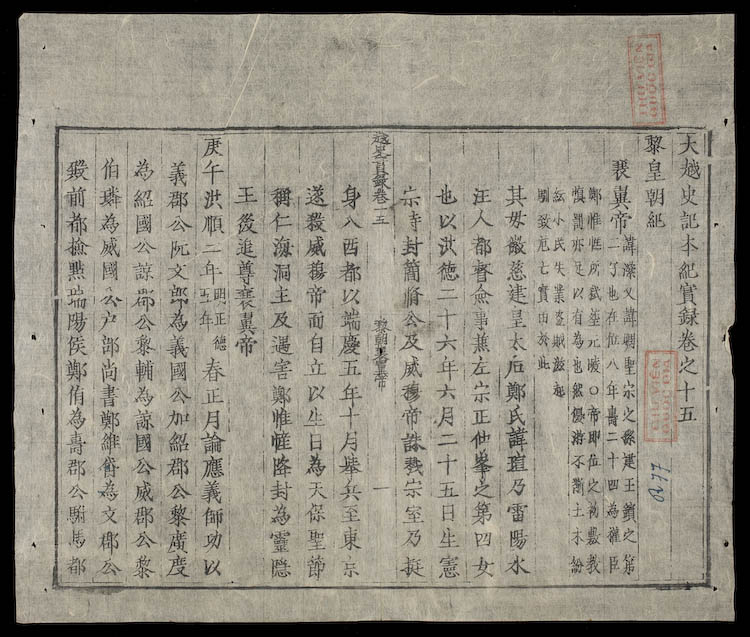 大越史記本紀實錄卷之十五
黎皇朝紀
襄翼帝
諱瀠又諱晭聖宗之孫建王鑌之第
二子也在位八年壽二十四為權臣
鄭惟㦃所弒葬元陵○帝即位之初敷教
慎罰亦足以有為也然優游不斷土木紛
紜小民失業盜賊滋起
馴致危亡實由於此
其母徽慈建皇太后鄭氏諱瑄乃雷陽水
注人都督僉事兼左宗正仲峯之第四女
也以洪德二十六年六月二十五日生憲
宗時封簡脩公及威穆帝誅戮宗室乃挺
身入西都以端慶五年十月舉兵至東京
遂殺威穆帝而自立以生日為天保聖節
稱仁海洞主及遇害鄭惟㦃降封為靈隱
王後追尊襄翼帝
庚午洪順二年
明正德
五年
春正月論應義師功以
義郡公阮文郎為義國公加紹郡公黎廣度
為紹國公諒郡公黎輔為諒國公威郡公黎
伯璘為威國公户部尚書鄭維𠐤為文郡公
殿前都撿㸃瑞陽侯鄭侑為壽郡公駙馬都
越史實錄卷十五
黎朝襄翼帝
一
A.77